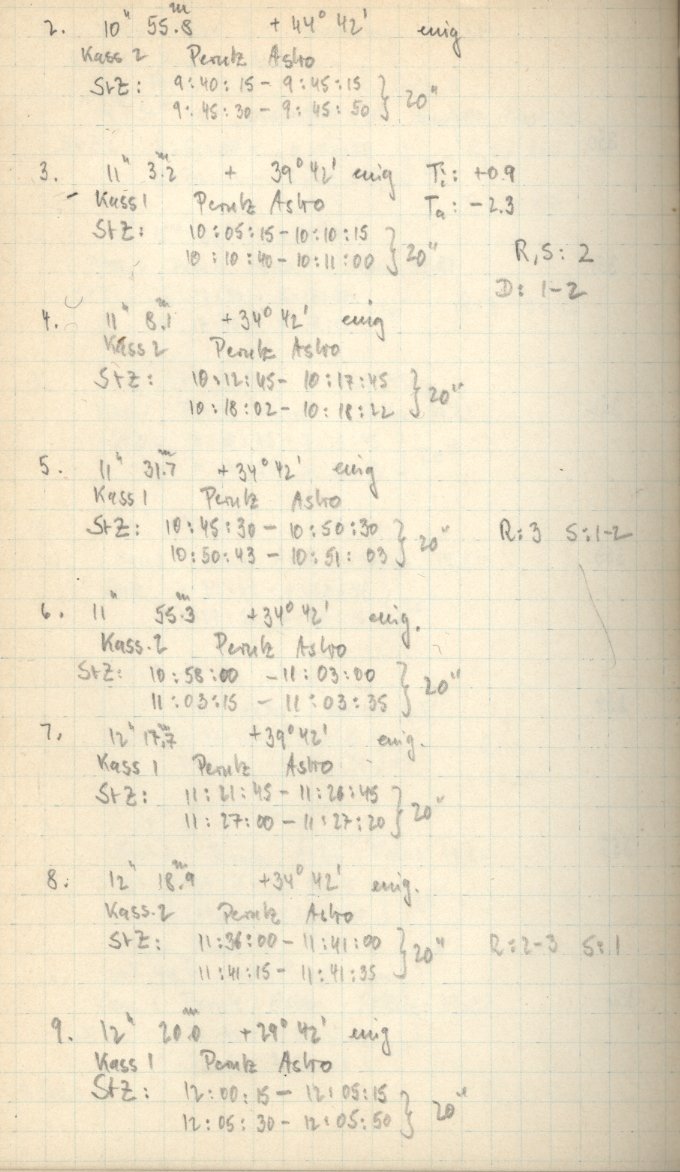 2. 10h 55.8m +44° 42' einig
Kass 2 Perutz Astro
StZ: 9:40:15 - 9:45:15 } 20"
9:45:30 - 9:45:50
3. 11h 3.2m + 39° 42' einig Ti: +0.9
Kass 1 Perutz Astro Ta: -2.3
StZ: 10:05:15 - 10:10:15 } 20"
10:10:40 - 10:11:00
R,S: 2
D: 1-2
4. 11h 8.1m +34° 42' einig
Kass 2 Perutz Astro
StZ: 10:12:45 - 10:17:45 } 20"
10:18:02 - 10:18:22
5. 11h 31.7m +34° 42' einig
Kass 1 Perutz Astro
StZ: 10:45:30 - 10:50:30 } 20" R:3 S:1-2
10:50:43 - 10:51:03
6. 11h 55.3m +34° 42' einig.
Kass.2 Perutz Astro
StZ: 10:58:00 - 11:03:00 } 20"
11:03:15 - 11:03:35
7. 12h 17.7m +39° 42' einig.
Kass 1 Perutz Astro
StZ: 11:21:45 - 11:26:45 } 20"
11:27:00 - 11:27:20
8. 12h 18.9m +34° 42' einig.
Kass.2 Perutz Astro
StZ: 11:36:00 - 11:41:00 } 20" R:2-3 S:1
11:41:15 - 11:41:35
9. 12h 20.0m +29° 42' einig
Kass 1 Perutz Astro
StZ: 12:00:15 - 12:05:15 } 20"
12:05:30 - 12:05:50